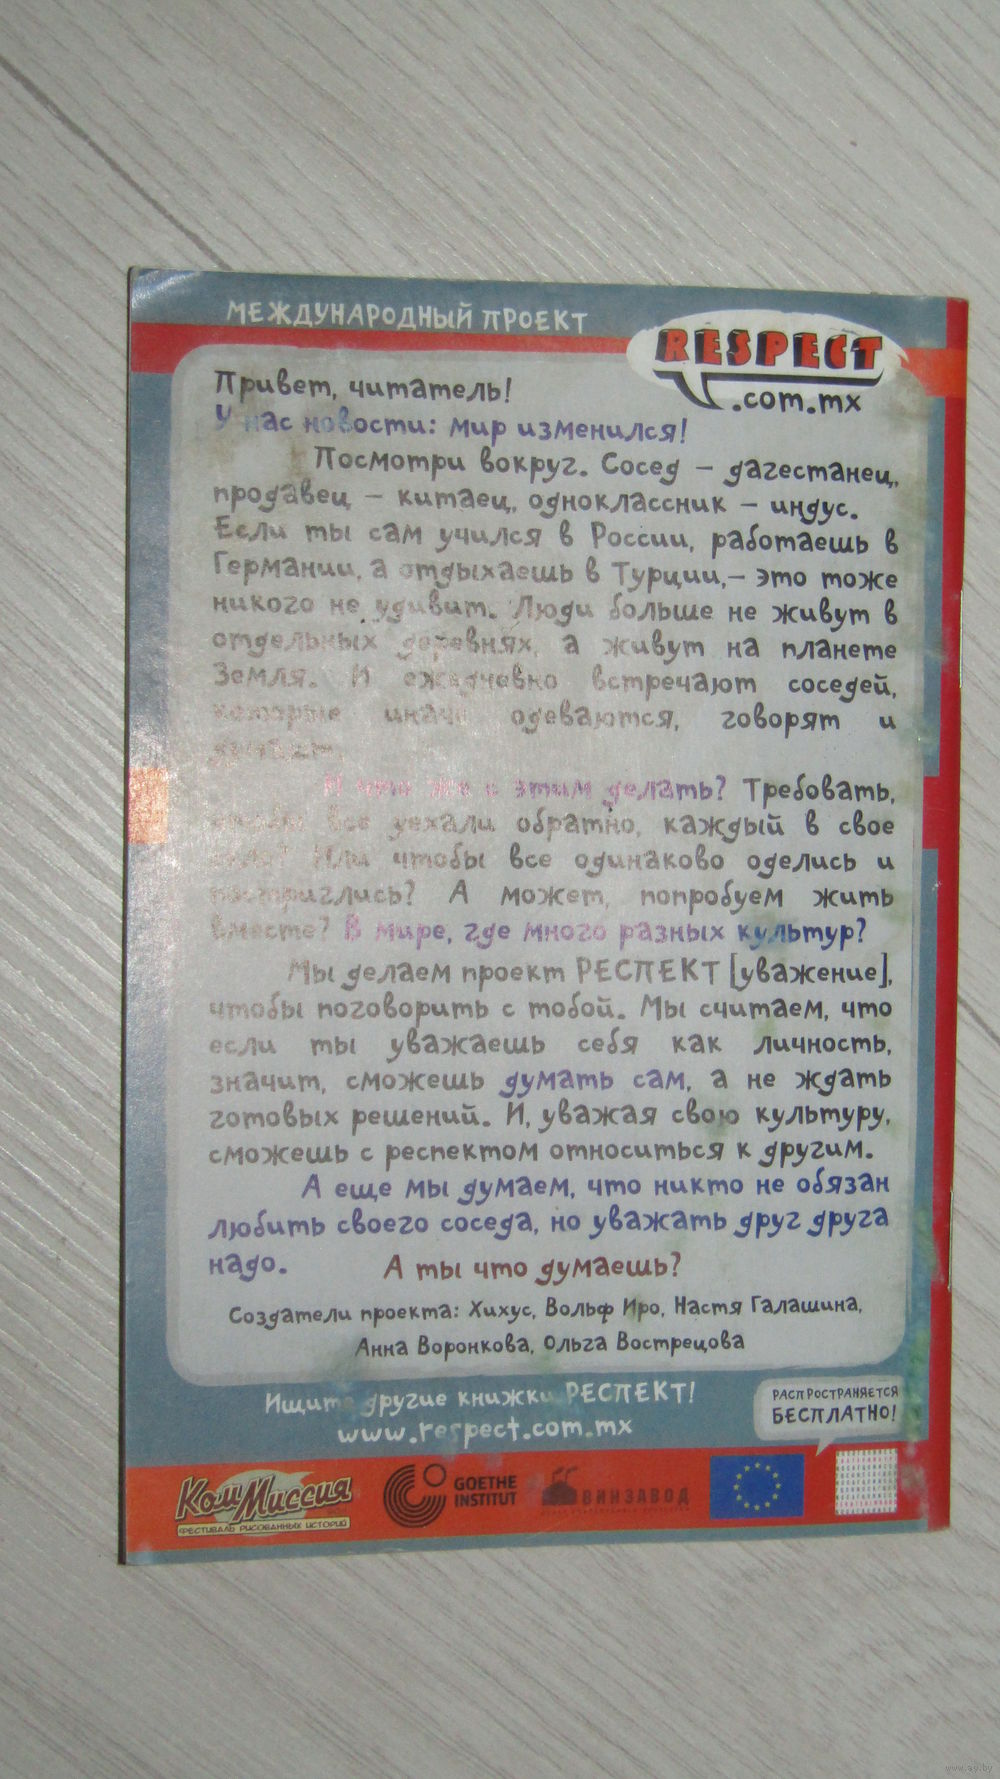 МЕЖДУНАРОДНЫЙ ПРОЕКТ
RESPECT
.com.mx
Привет, читатель!
У нас новости: мир изменился!
Посмотри вокруг. Сосед – дагестанец,
продавец – китаец, одноклассник – индус.
Если ты сам учился в России, работаешь в
Германии, а отдыхаешь в Турции,– это тоже
никого не удивит. Люди больше не живут в
отдельных деревнях, а живут на планете
Земля. И ежедневно встречают соседей,
которые иначе одеваются, говорят и
думают.
И что же с этим делать? Требовать,
чтобы все уехали обратно, каждый в свое
село? Или чтобы все одинаково оделись и
постриглись? А может, попробуем жить
вместе? В мире, где много разных культур?
Мы делаем проект РЕСПЕКТ [уважение],
чтобы поговорить с тобой. Мы считаем, что
если ты уважаешь себя как личность,
значит, сможешь думать сам, а не ждать
готовых решений. И, уважая свою культуру,
сможешь с респектом относиться к другим.
А еще мы думаем, что никто не обязан
любить своего соседа, но уважать друг друга
надо. А ты что думаешь?
Создатели проекта: Хихус, Вольф Иро, Настя Галашина,
Анна Воронкова, Ольга Вострецова
Ищите другие книжки РЕСПЕКТ!
www.respect.com.mx
РАСПРОСТРАНЯЕТСЯ
БЕСПЛАТНО!
КомМиссия
ФЕСТИВАЛЬ РИСОВАННЫХ ИСТОРИЙ
GOETHE
INSTITUT
ВИНЗАВОД
www.ay.by